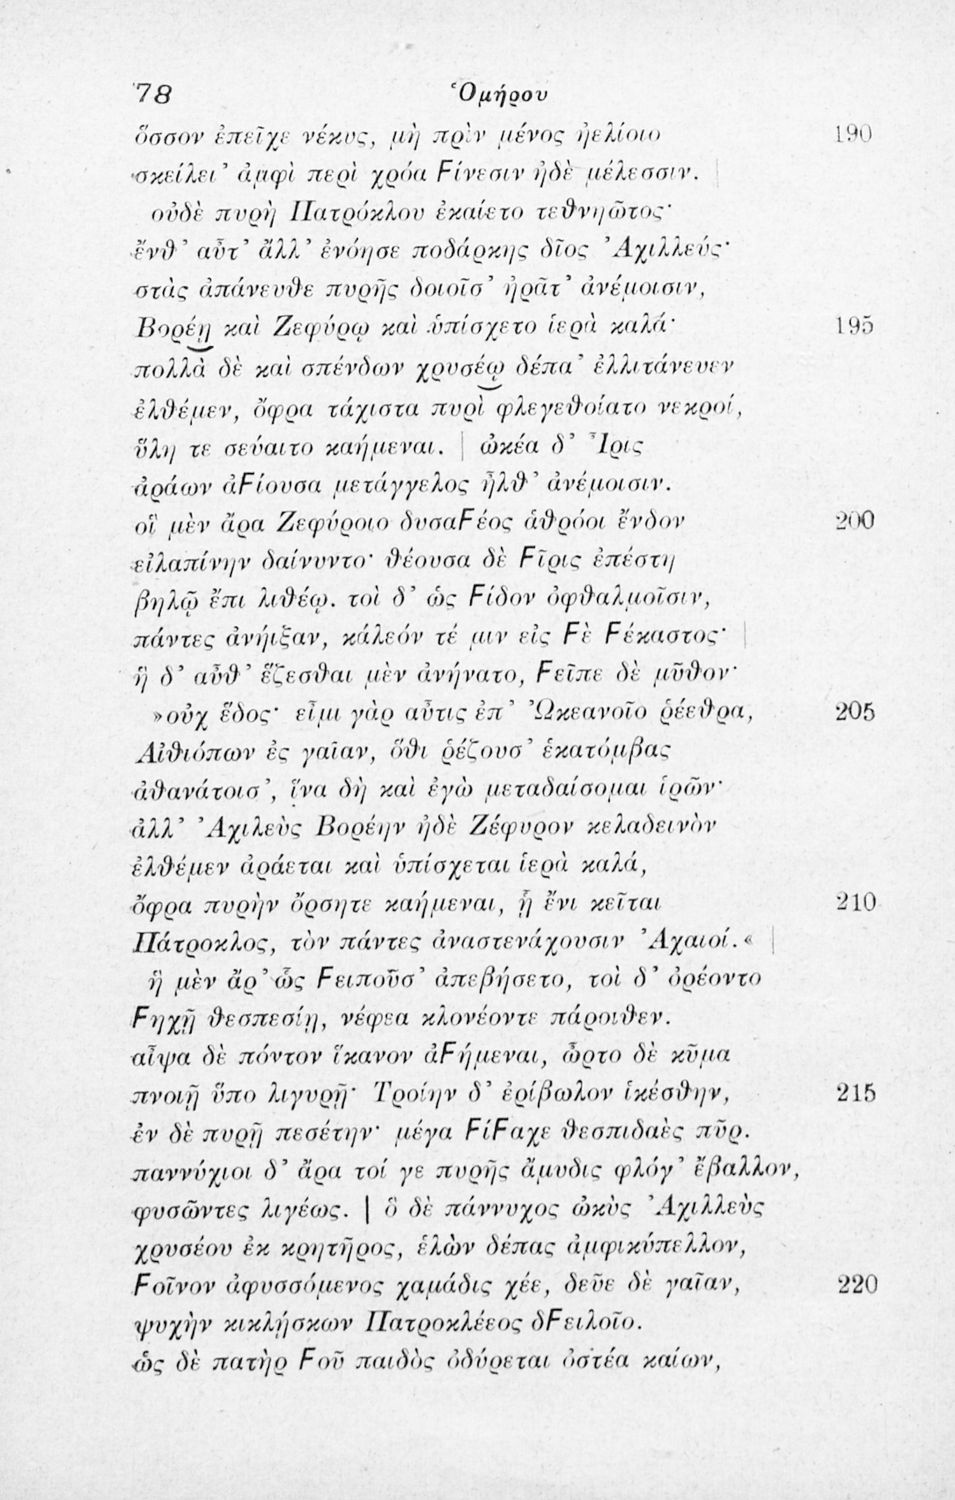 78 Ὁμήρου
ὅσσον ἐπεῖχε νέκυς, μὴ πρὶν μένος ἠελίοιο 190
σκείλει᾽ ἀμφὶ περὶ χρόα Ϝίνεσιν ἠδὲ μέλεσσιν. |
οὐδὲ πυρὴ Πατρόκλου ἐκαίετο τεθνηῶτος·
ἔνθ᾽ αὖτ᾽ ἄλλ᾽ ἐνόησε ποδάρκης δῖος Ἀχιλλεύς·
στὰς ἀπάνευθε πυρῆς δοιοῖσ᾽ ἠρᾶτ᾽ ἀνέμοισιν,
Βορέῃ καὶ Ζεφύρῳ καὶ ὑπίσχετο ἱερὰ καλά· 195
πολλὰ δὲ καὶ σπένδων χρυσέῳ δέπα᾽ ἐλλιτάνευεν
ἐλθέμεν, ὄφρα τάχιστα πυρὶ φλεγεθοίατο νεκροί,
ὕλη τε σεύαιτο καήμεναι. | ὠκέα δ᾽ Ἶρις
ἀράων ἀϜίουσα μετάγγελος ἦλθ᾽ ἀνέμοισιν.
οἳ μὲν ἄρα Ζεφύροιο δυσαϜέος ἁθρόοι ἔνδον 200
εἰλαπίνην δαίνυντο· θέουσα δὲ Ϝῖρις ἐπέστη
βηλῷ ἔπι λιθέῳ. τοὶ δ᾽ ὡς Ϝίδον ὀφθαλμοῖσιν,
πάντες ἀνήιξαν, κάλεόν τέ μιν εἰς Ϝὲ Ϝέκαστος· |
ἣ δ᾽ αὖθ᾽ ἕζεσθαι μὲν ἀνήνατο, Ϝεῖπε δὲ μῦθον·
»οὐχ ἕδος· εἶμι γὰρ αὖτις ἐπ᾽ Ὠκεανοῖο ῥέεθρα, 205
Αἰθιόπων ἐς γαῖαν, ὅθι ῥέζουσ᾽ ἑκατόμβας
ἀθανάτοισ᾽, ἵνα δὴ καὶ ἐγὼ μεταδαίσομαι ἱρῶν·
ἀλλ᾽ Ἀχιλεὺς Βορέην ἠδὲ Ζέφυρον κελαδεινὸν
ἐλθέμεν ἀράεται καὶ ὑπίσχεται ἱερὰ καλά,
ὄφρα πυρὴν ὄρσητε καήμεναι, ᾗ ἔνι κεῖται 210
Πάτροκλος, τὸν πάντες ἀναστενάχουσιν Ἀχαιοί.« |
ἣ μὲν ἄρ᾽ ὣς Ϝειποῦσ᾽ ἀπεβήσετο, τοὶ δ᾽ ὀρέοντο
Ϝηχῇ θεσπεσίῃ, νέφεα κλονέοντε πάροιθεν.
αἶψα δὲ πόντον ἵκανον ἀϜήμεναι, ὦρτο δὲ κῦμα
πνοιῇ ὕπο λιγυρῇ· Τροίην δ᾽ ἐρίβωλον ἱκέσθην, 215
ἐν δὲ πυρῇ πεσέτην· μέγα ϜίϜαχε θεσπιδαὲς πῦρ.
παννύχιοι δ᾽ ἄρα τοί γε πυρῆς ἄμυδις φλόγ᾽ ἔβαλλον,
φυσῶντες λιγέως. | ὃ δὲ πάννυχος ὠκὺς Ἀχιλλεὺς
χρυσέου ἐκ κρητῆρος, ἑλὼν δέπας ἀμφικύπελλον,
Ϝοῖνον ἀφυσσόμενος χαμάδις χέε, δεῦε δὲ γαῖαν, 220
ψυχὴν κικλήσκων Πατροκλέεος δϜειλοῖο.
ὡς δὲ πατὴρ Ϝοῦ παιδὸς ὀδύρεται ὀστέα καίων,